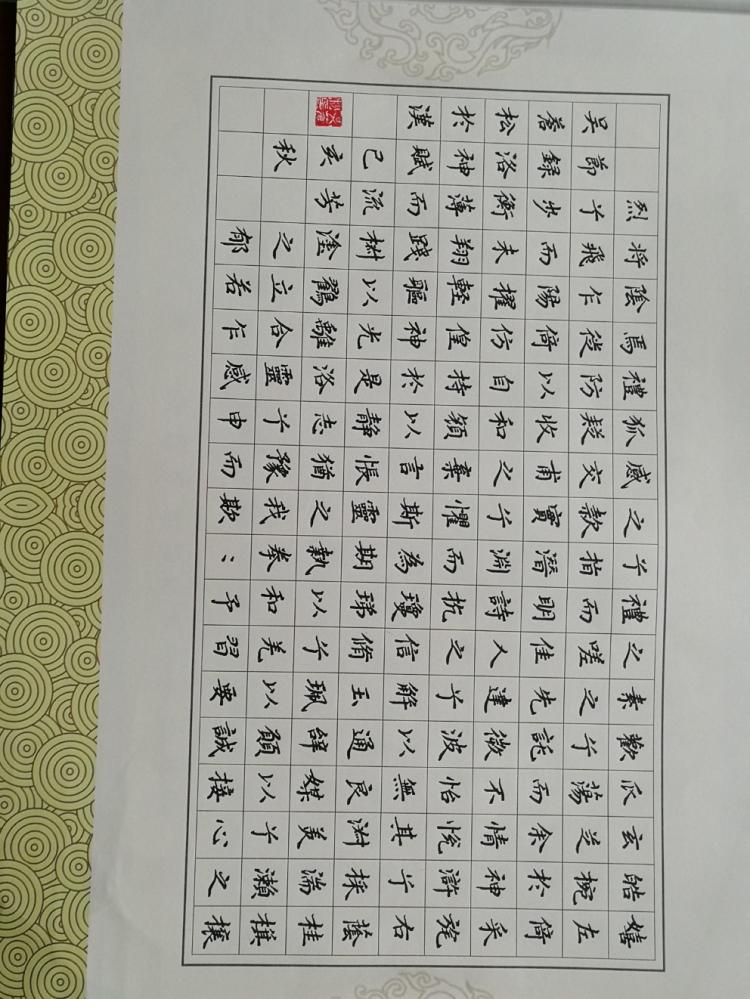 嬉左倚采旄右蔭桂旗攘
皓腕於神滸兮採湍瀨之
玄芝余情悅其淑美兮心
蕩而不怡無良媒以接
歡兮託微波以通辭願誠
素之先達兮解玉珮以要
之嗟佳人之信脩兮羌習
禮而明詩抗瓊珶以和予
兮指潛淵而為期執拳〻
之款實兮懼斯靈之我欺
感交甫之棄言悵猶豫而
狐疑收和顏以靜志兮申
禮防以自持於是洛靈感
焉徙倚仿偟神光離合乍
陰乍陽擢輕軀以鶴立若
將飛而未翔踐椒塗之郁
烈兮步衡薄而流芳
節錄洛神賦己亥秋
吳蒼松於漢